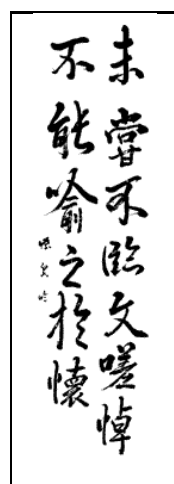 未嘗不臨文嗟悼
不能喻之於懷